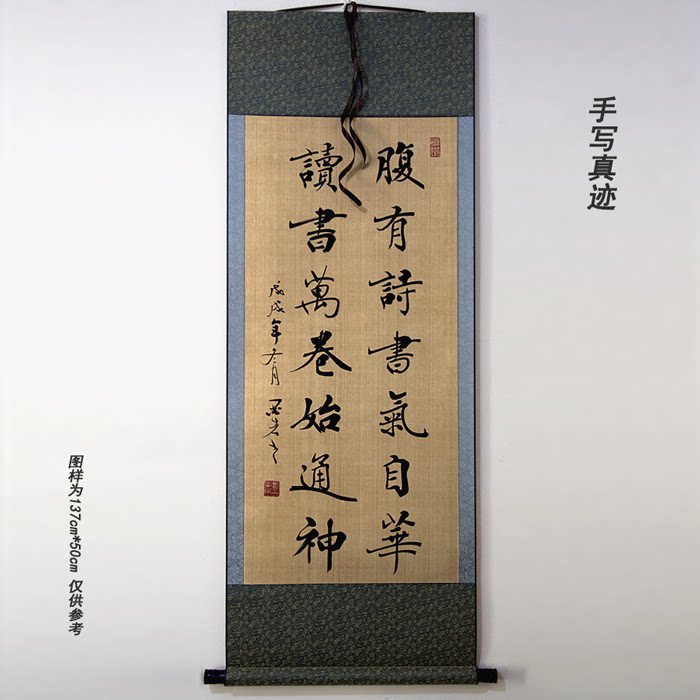 腹有詩書氣自華
讀書萬卷始通神
戊戌年冬月
手写真迹
图样为137cm*50cm 仅供参考